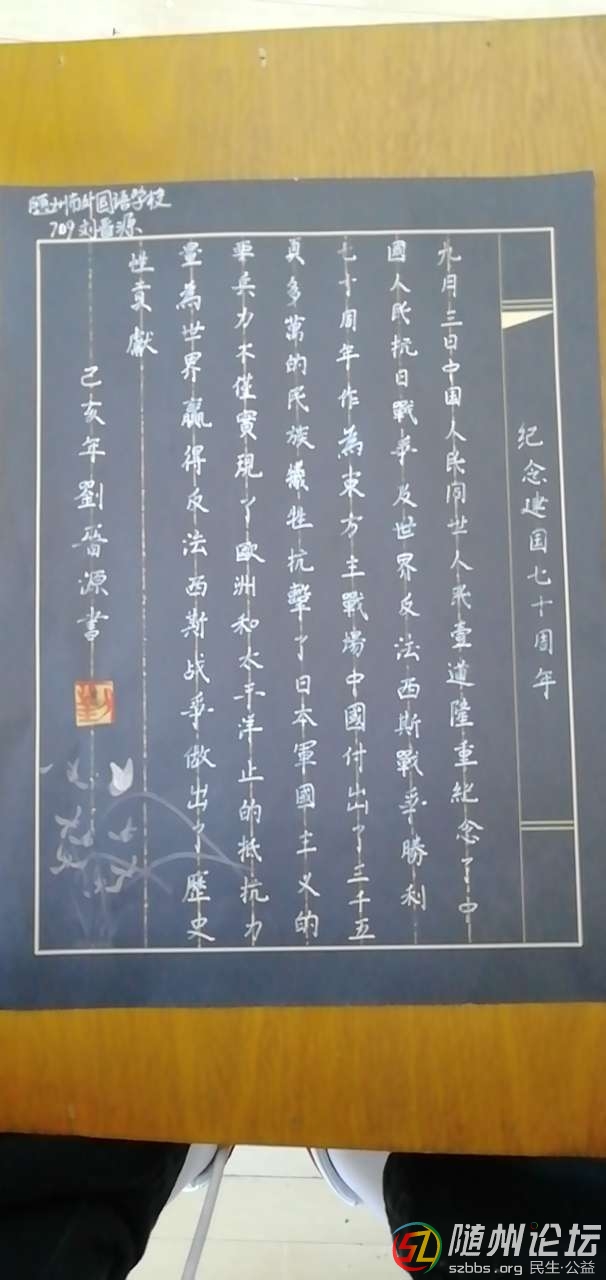 随州市外国语学校
709刘晋源
纪念建国七十周年
九月三日中国人民同世人民壹道隆重紀念了中
國人民抗日戰爭及世界反法西斯戰爭勝利
七十周年作為東方主戰場中國付出了三千五
多萬的民族犧牲抗擊了日本軍國主义的
兵力不僅實現了歐洲和太平洋止的抵抗力
量為世界贏得反法西斯战爭做出了歷史
性貢獻
己亥年劉晋源書
劉
随州论坛
szbbs.org 民生·公益